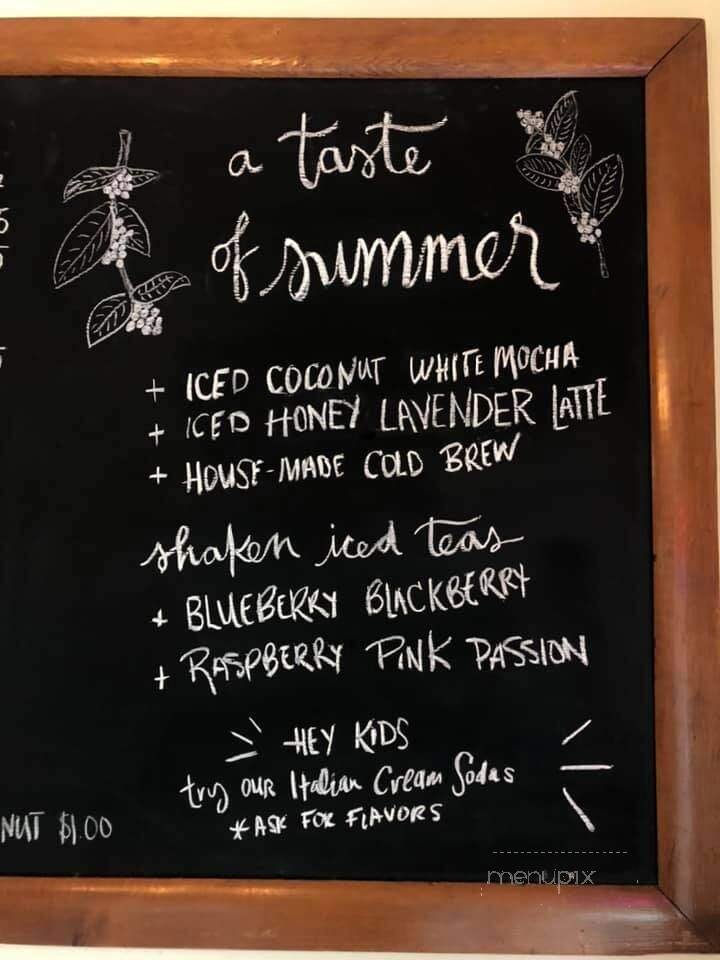 a taste
of summer
+ ICED COCONUT WHITE MOCHA
+ ICED HONEY LAVENDER LATTE
+ HOUSE-MADE COLD BREW
shaken iced teas
+ BLUEBERRY BLACKBERRY
+ RASPBERRY PINK PASSION
HEY KIDS
try our Italian Cream Sodas
*ASK FOR FLAVORS
NUT $1.00
menupix